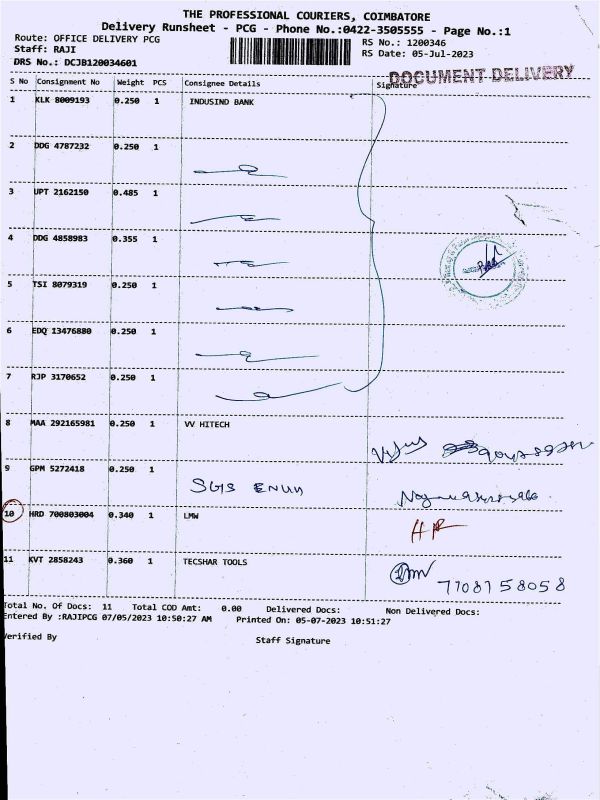 THE PROFESSIONAL COURIERS, COIMBATORE
Delivery Runsheet - PCG - Phone No.:0422-3505555 - Page No.:1
Route: OFFICE DELIVERY PCG
Staff: RAJI
DRS No.: DCJB120034601
RS No.: 1200346
RS Date: 05-Jul-2023
DOCUMENT DELIVERY
S No Consignment No Weight PCS Consignee Details Signature
1 KLK 8009193 0.250 1 INDUSIND BANK
2 DDG 4787232 0.250 1
3 UPT 2162150 0.485 1
4 DDG 4858983 0.355 1
5 TSI 8079319 0.250 1
6 EDQ 13476880 0.250 1
7 RJP 3170652 0.250 1
8 MAA 292165981 0.250 1 VV HITECH
9 GPM 5272418 0.250 1
10 HRD 700803004 0.340 1 LMW
11 KVT 2858243 0.360 1 TECSHAR TOOLS
7708158058
Total No. Of Docs: 11 Total COD Amt: 0.00 Delivered Docs: Non Delivered Docs:
Entered By :RAJIPCG 07/05/2023 10:50:27 AM Printed On: 05-07-2023 10:51:27
Verified By Staff Signature